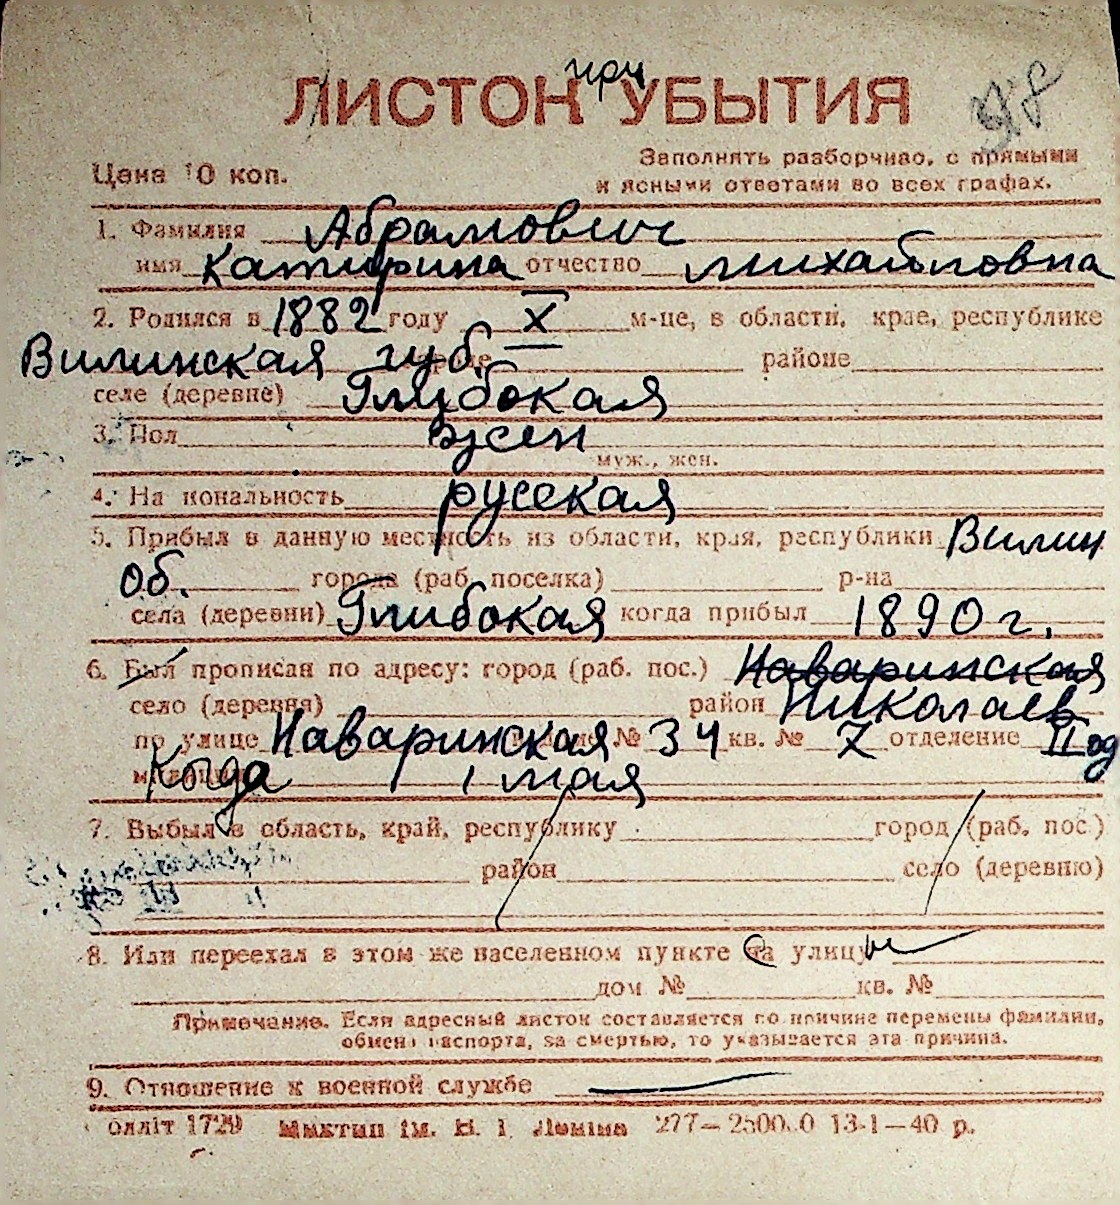 при
ЛИСТОК УБЫТИЯ
Цена 10 коп.
Заполнять разборчиво, с прямыми
и ясными ответами во всех графах.
1. Фамилия Абрамович
имя Катирина отчество михайловна
2. Родился в 1882 году X м-це, в области, крае, республике
Вилинская губ. районе
селе (деревне) Глубокая
3. Пол жен
муж., жен.
4. На иональность русская
5. Прибыл в данную местность из области, края, республики Вилин
об. города (раб. поселка) р-на
села (деревни) Глибокая когда прибыл 1890 г.
6. Был прописан по адресу: город (раб. пос.) Наваринская
село (деревня) район Николаев
по улице Наваринская № 34 кв. № 7 отделение II од
милиции Когда 1 мая
7. Выбыл в область, край, республику город (раб. пос.)
район село (деревню)
8. Или переехал в этом же населенном пункте на улицу
дом № кв. №
Примечание. Если адресный листок составляется по причине перемены фамилии,
обмена паспорта, за смертью, то указывается эта причина.
9. Отношение к военной службе
блліт 1729 277— 13-1—40 р.